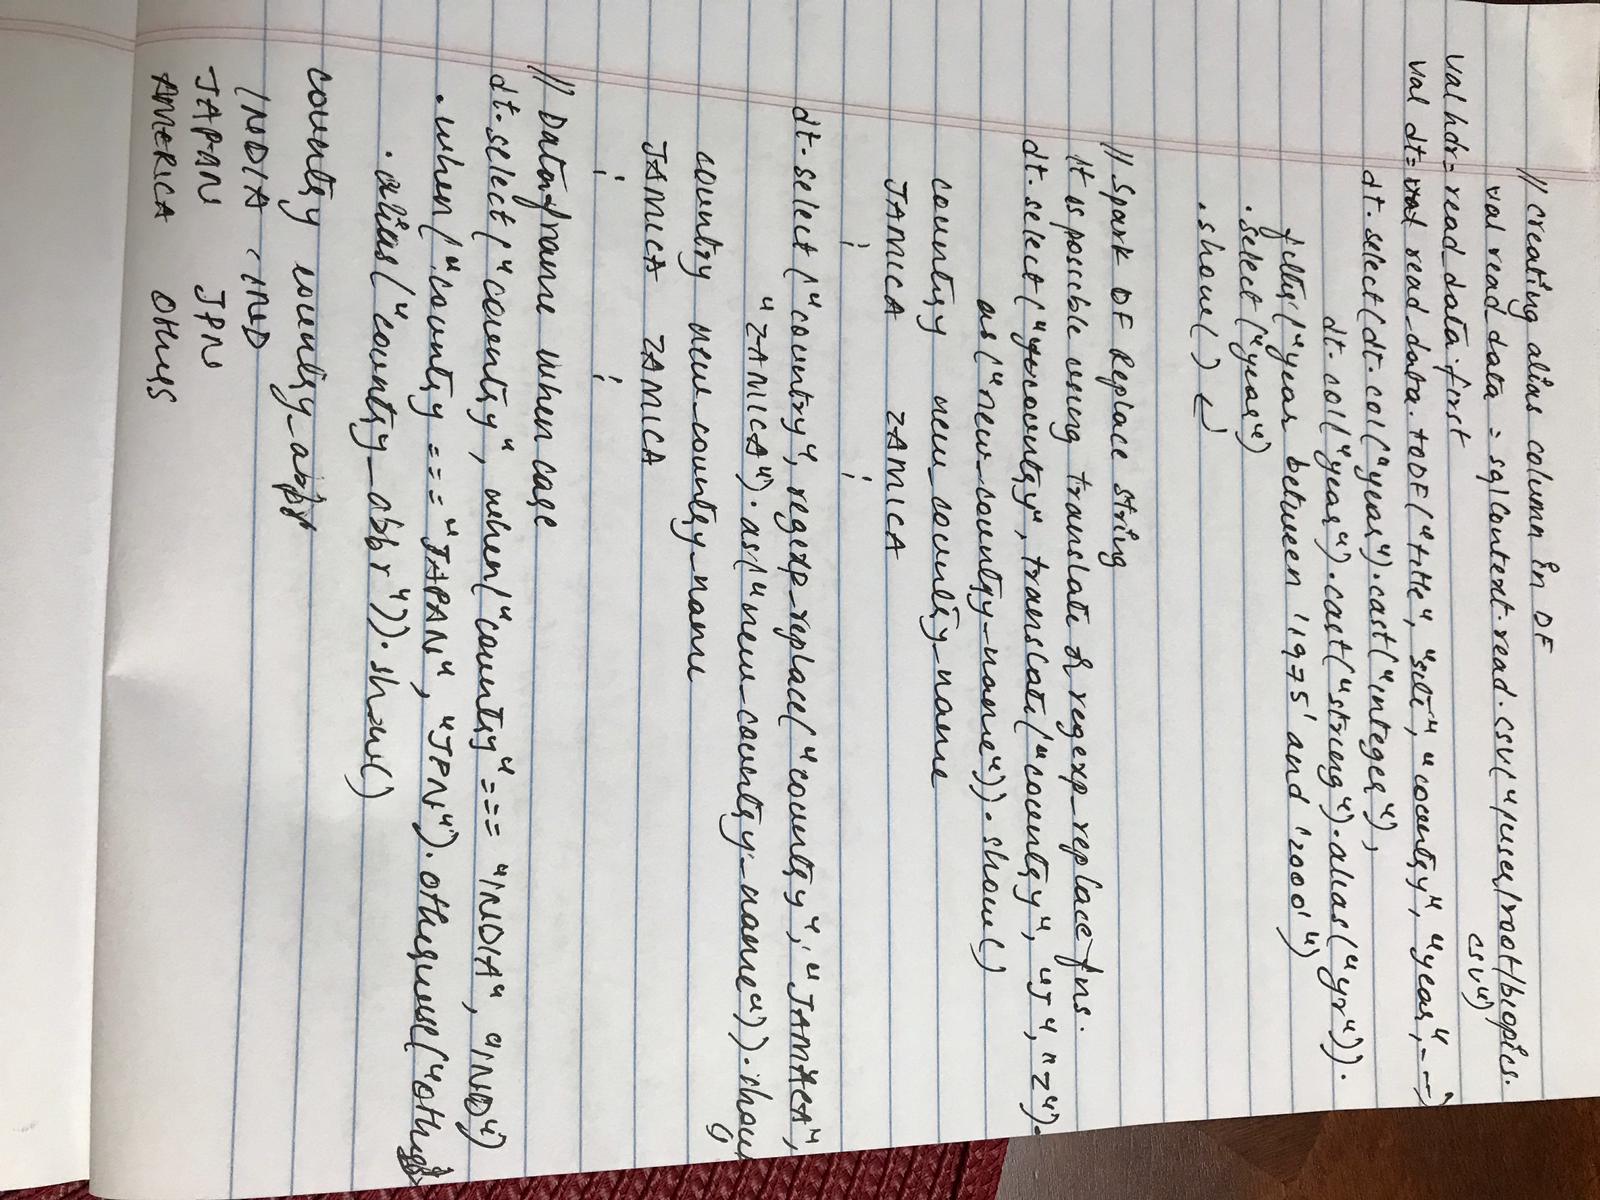 // creating alias column in DF
val read data = sqlContext.read.csv("/user/root/biopics.
csv")
val hdr = read_data.first
val dt = read_data.toDF("title", "site", "country", "year", --)
dt.select(dt.col("year").cast("integer"),
dt.col("year").cast("string").alias("yr")).
filter("year between '1975' and '2000'")
.select("year")
.show() ↵
// Spark DF Replace string
it is possible using translate & regexp_replace fns.
dt.select("country", translate("country", "J", "Z").
as("new_country_name")).show()
country new_country_name
JAMICA ZAMICA
dt.select("country", regexp_replace("country", "JAMICA",
"ZAMICA").as("new_country_name")).show()
country new_country_name
JAMICA ZAMICA
// Dataframe when case
dt.select("country", when("country" === "INDIA", "IND")
.when("country === "JAPAN", "JPN").otherwise("others
.alias("country_abbr")).show()
country country_abbr
INDIA IND
JAPAN JPN
AMERICA others